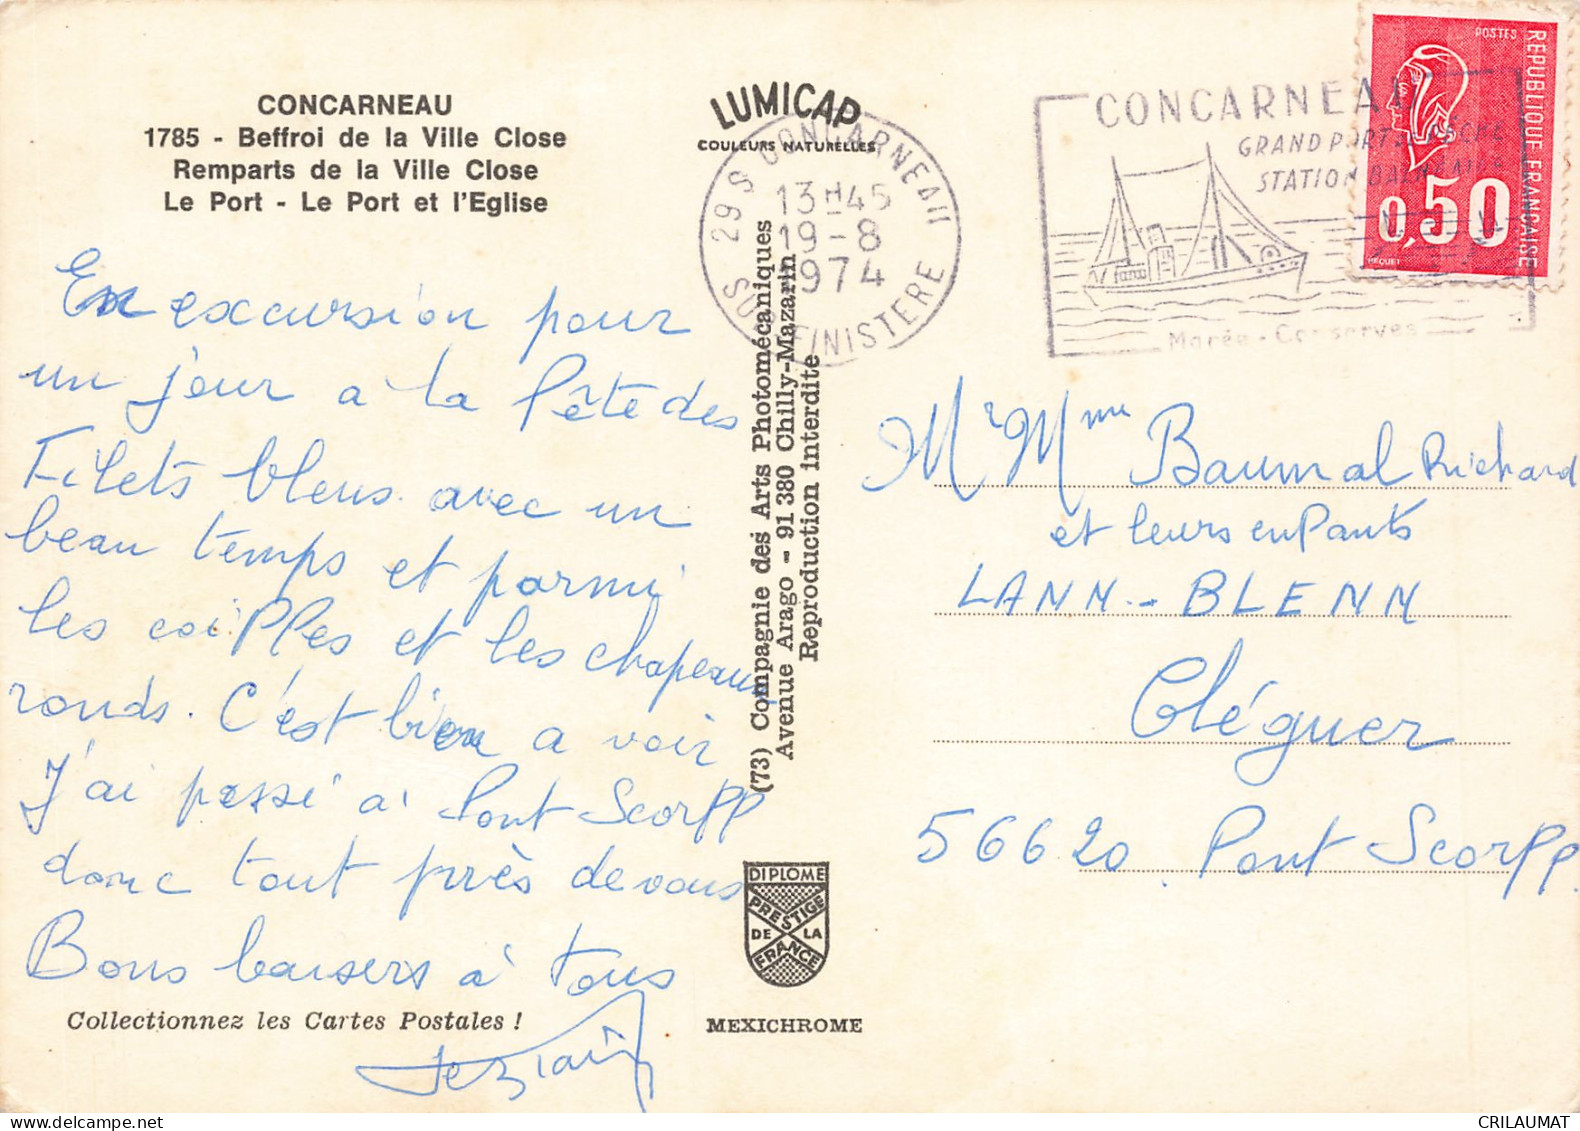 CONCARNEAU
1785 - Beffroi de la Ville Close
Remparts de la Ville Close
Le Port - Le Port et l'Eglise
En excursion pour
un jour a la fête des
Filets bleus avec un
beau temps et parmi
les coiffes et les chapeaux
ronds. C'est bien a voir
J'ai passé à Pont Scorff
donc tout près de vous
Bons baisers à tous
Collectionnez les Cartes Postales !
LUMICAP
COULEURS NATURELLES
29 S CONCARNEAU
13H45
19-8
1974
SUD FINISTERE
(73) Compagnie des Arts Photomécaniques
Avenue Arago - 91 380 Chilly-Mazarin
Reproduction interdite
DIPLOME
PRESTIGE
DE LA
FRANCE
MEXICHROME
CONCARNEAU
GRAND PORT DE PÊCHE
STATION BALNEAIRE
Marée - Conserves
POSTES
REPUBLIQUE FRANCAISE
0,50
BEQUET
Mr Mme Baumal Richard
et leurs enfants
LANN-BLENN
Cléguer
56620 Pont Scorff
CRILAUMAT